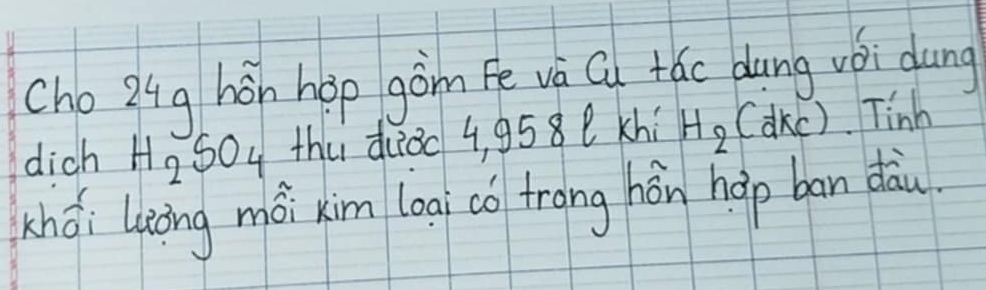 Cho 24g hỗn hợp gồm Fe và Cu tác dụng với dung
dịch H₂SO₄ thu được 4,958 l khí H₂ (đkc). Tính
khối lượng mỗi kim loại có trong hỗn hợp ban đầu.